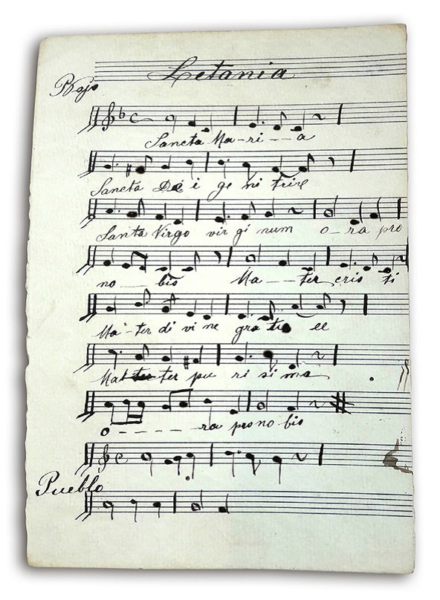 Letania
Bajo
Sancta Ma-ri--a
Sancta Dei ge ni trixe
Santa Virgo vir gi num o-ra pro
no-bis Ma--ter cris ti
Ma-ter di vi ne gra tie ee
Mal ter pu ri sima
o-----ra pro no-bis
Pueblo